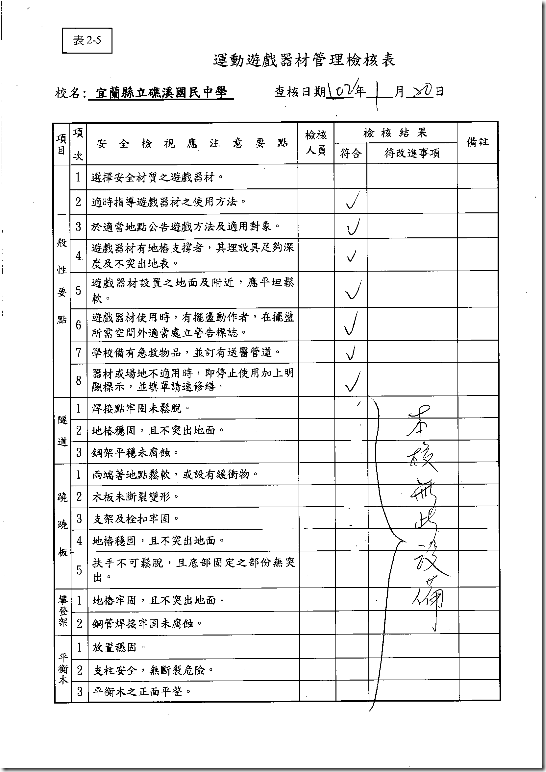 表2-5
運動遊戲器材管理檢核表
校名：宜蘭縣立礁溪國民中學 查核日期102年1月20日
項目 項次 安全檢視應注意要點 檢核人員 檢核結果 備註
符合 待改進事項
一般性要點
1 選擇安全材質之遊戲器材。
2 適時指導遊戲器材之使用方法。 ✓
3 於適當地點公告遊戲方法及適用對象。 ✓
4 遊戲器材有地樁支撐者，其埋設具足夠深
度及不突出地表。 ✓
5 遊戲器材設置之地面及附近，應平坦鬆
軟。 ✓
6 遊戲器材使用時，有擺盪動作者，在擺盪
所需空間外適當處立警告標誌。 ✓
7 學校備有急救物品，並訂有送醫管道。 ✓
8 器材或場地不適用時，即停止使用加上明
顯標示，並填單請速修繕。 ✓
隧道
1 焊接點牢固未鬆脫。
2 地樁穩固，且不突出地面。
3 鋼架平穩未腐蝕。
蹺蹺板
1 兩端著地點鬆軟，或設有緩衝物。
2 木板未斷裂變形。
3 支架及栓扣牢固。
4 地樁穩固，且不突出地面。
5 扶手不可鬆脫，且底部固定之部份無突
出。
攀登架
1 地樁牢固，且不突出地面。
2 鋼管焊接牢固未腐蝕。
平衡木
1 放置穩固。
2 支柱安全，無斷裂危險。
3 平衡木之正面平整。
本校無此設備